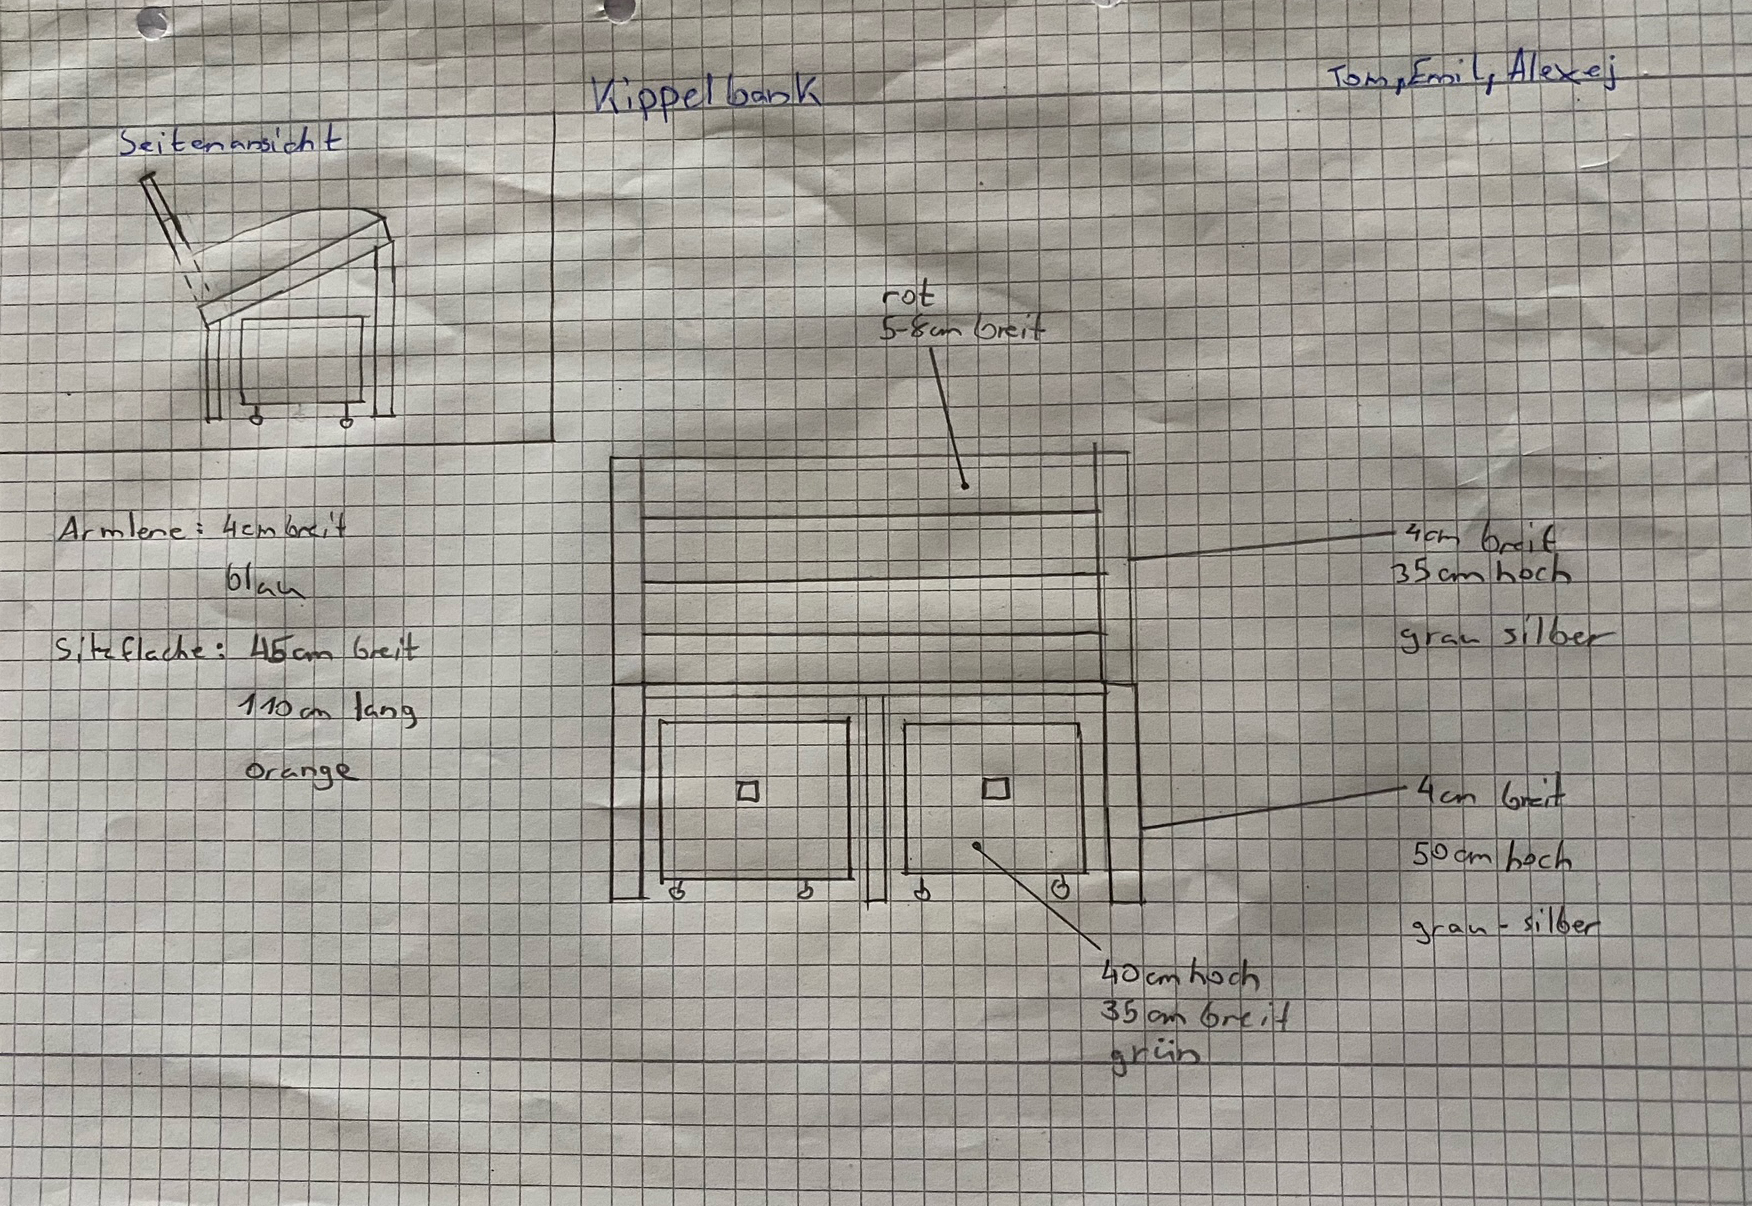 Kippelbank
Tom, Emil, Alexej
Seitenansicht
rot
5-8cm breit
Armlene: 4cm breit
blau
Sitzflache: 45cm breit
110cm lang
orange
4cm breit
35cm hoch
grau silber
4cm breit
50cm hoch
grau-silber
40cm hoch
35cm breit
grün